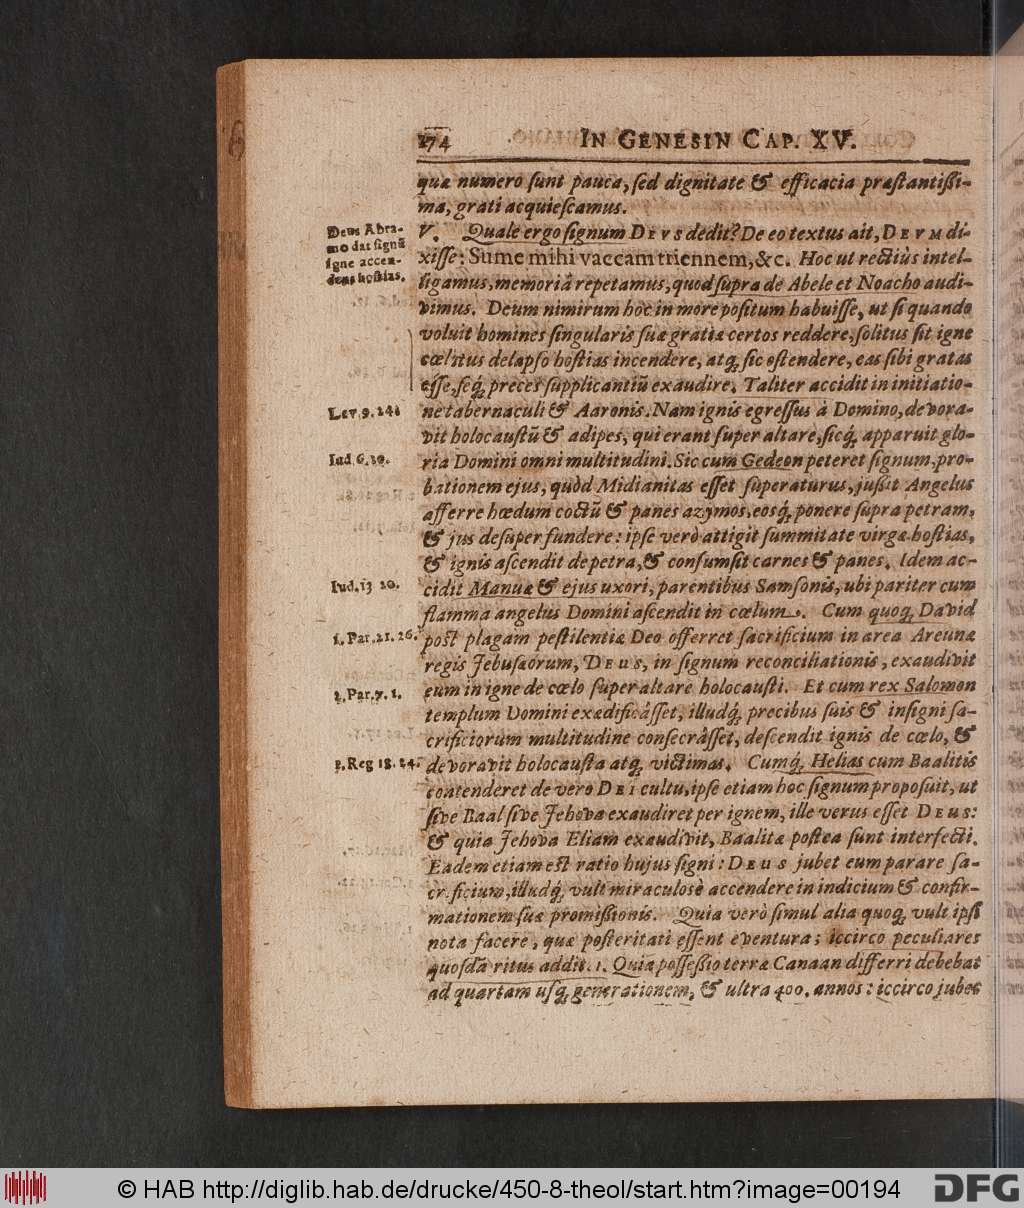 174 IN GENESIN CAP. XV.
quæ numero ſunt pauca, ſed dignitate & efficacia præſtantiſsi-
ma, grati acquieſcamus.
Deus Abra-
mo dat ſignũ
igne accen-
dens hoſtias.
V. Quale ergo ſignum DEVS dedit? De eo textus ait, DEVM di-
xiſſe: Sume mihi vaccam triennem, &c. Hoc ut rectiùs intel-
ligamus, memoriâ repetamus, quod ſupra de Abele et Noacho audi-
vimus. Deum nimirum hoc in more poſitum habuiſſe, ut ſi quando
voluit homines ſingularis ſuæ gratiæ certos reddere, ſolitus ſit igne
cœlitus delapſo hoſtias incendere, atq́; ſic oſtendere, eas ſibi gratas
eſſe, ſeq́; preces ſupplicantiũ exaudire. Taliter accidit in initiatio-
Lev. 9. 24.
ne tabernaculi & Aaronis. Nam ignis egreſſus à Domino, devora-
vit holocauſtũ & adipes, qui erant ſuper altare, ſicq́; apparuit glo-
Iud. 6. 20.
ria Domini omni multitudini. Sic cum Gedeon peteret ſignum, pro-
bationem ejus, quòd Midianitas eſſet ſuperaturus, juſsit Angelus
afferre hœdum coctũ & panes azymos, eosq́; ponere ſupra petram,
& jus deſuper fundere: ipſe verò attigit ſummitate virgæ hoſtias,
& ignis aſcendit de petra, & conſumſit carnes & panes. Idem ac-
Iud. 13 20.
cidit Manuæ & ejus uxori, parentibus Samſonis, ubi pariter cum
flamma angelus Domini aſcendit in cœlum. Cum quoq; David
1. Par. 21. 26.
poſt plagam peſtilentiæ Deo offerret ſacrificium in area Areunæ
regis Jebuſæorum, DEUS, in ſignum reconciliationis, exaudivit
2. Par. 7. 1.
eum in igne de cœlo ſuper altare holocauſti. Et cum rex Salomon
templum Domini exædificâſſet, illudq́; precibus ſuis & inſigni ſa-
crificiorum multitudine conſecrâſſet, deſcendit ignis de cœlo, &
3. Reg 18. 24.
devoravit holocauſta atq; victimas. Cumq́; Helias cum Baalitis
contenderet de vero DEI cultu, ipſe etiam hoc ſignum propoſuit, ut
ſive Baal ſive Jehova exaudiret per ignem, ille verus eſſet DEUS:
& quia Jehova Eliam exaudivit, Baalitæ poſtea ſunt interfecti.
Eadem etiam eſt ratio hujus ſigni: DEUS jubet eum parare ſa-
crificium, illudq́; vult miraculosè accendere in indicium & confir-
mationem ſuæ promiſsionis. Quia verò ſimul alia quoq; vult ipſi
nota facere, quæ poſteritati eſſent eventura; iccirco peculiares
quoſdã ritus addit. 1. Quia poſſeſsio terræ Canaan differri debebat
ad quartam uſq; generationem, & ultra 400. annos: iccirco jubet
© HAB http://diglib.hab.de/drucke/450-8-theol/start.htm?image=00194
DFG